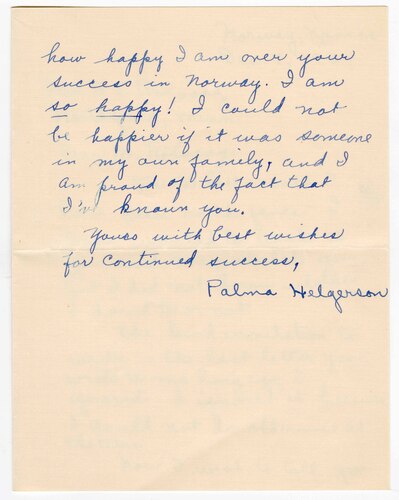 how happy I am over your
success in Norway. I am
so happy! I could not
be happier if it was someone
in my own family, and I
am proud of the fact that
I've known you.
Yours with best wishes
for continued success,
Palma Helgerson